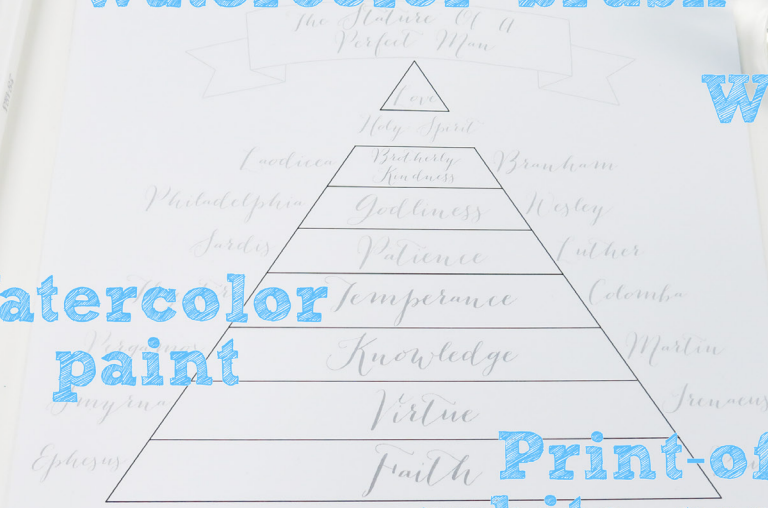 watercolor brush
The Stature Of A
Perfect Man
w
Love
Holy Spirit
Laodicea
Brotherly
Kindness
Branham
Philadelphia
Godliness
Wesley
Sardis
Patience
Luther
Temperance
Colomba
atercolor
paint
Pergamos
Knowledge
Martin
Smyrna
Virtue
Irenaeus
Ephesus
Faith
Print-of
kit